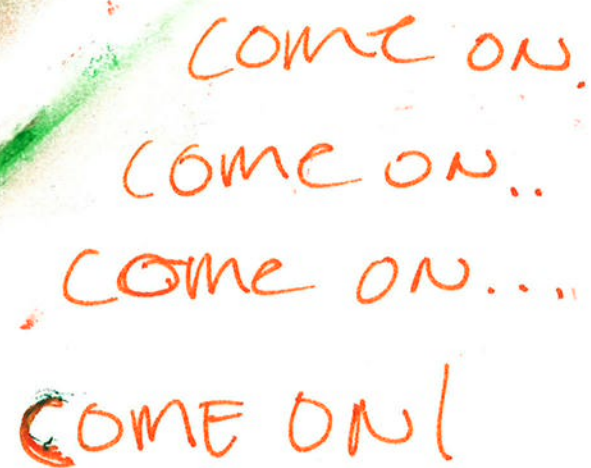 COME ON.
COME ON..
COME ON....
COME ON!